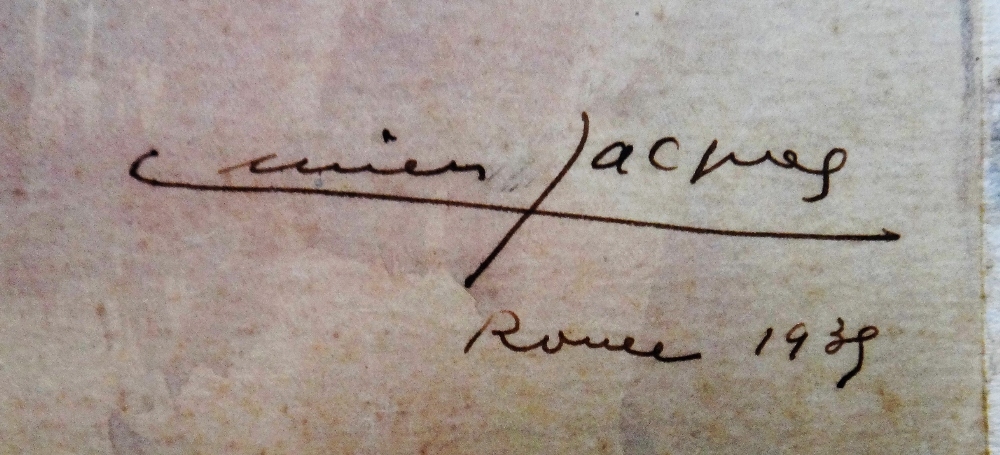 Lucien Jacques
1939